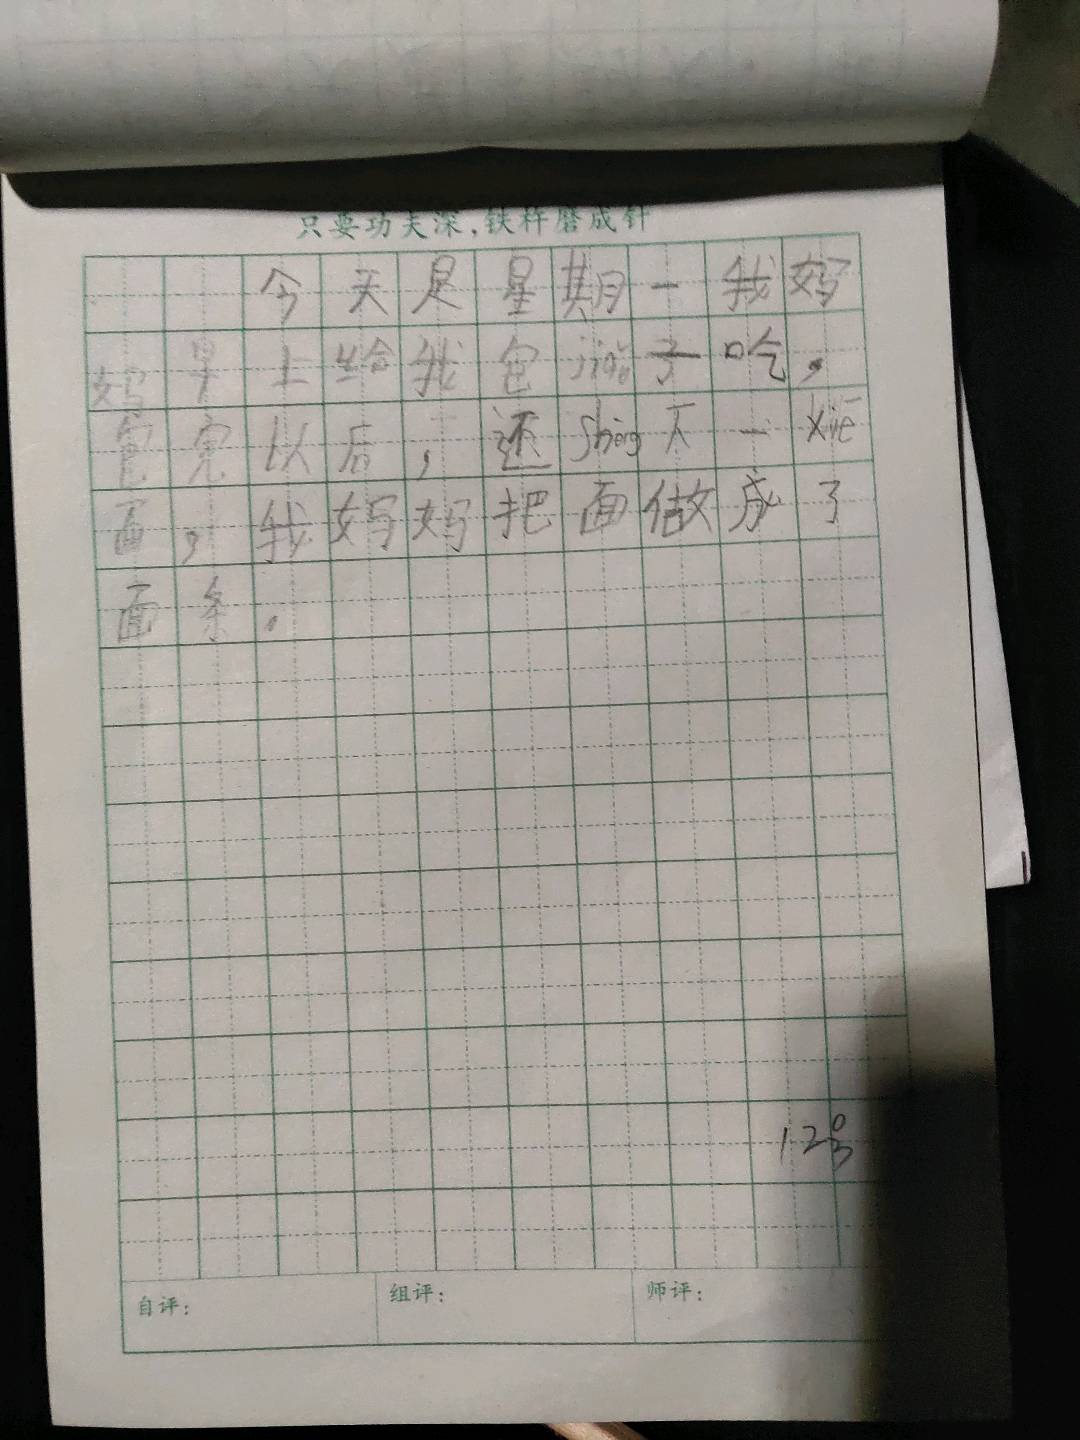 只要功夫深,铁杵磨成针
今天是星期一我妈
妈早上给我包jiǎo子吃，
包完以后，还shèng下一xiē
面，我妈妈把面做成了
面条。
12号
自评： 组评： 师评：